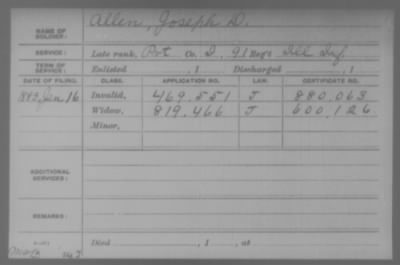 Allen, Joseph D.
NAME OF SOLDIER:
SERVICE: Late rank, Pvt Co. D, 91 Reg't Ill Inf.
TERM OF SERVICE: Enlisted , 1 Discharged , 1
DATE OF FILING. CLASS. APPLICATION NO. LAW. CERTIFICATE NO.
1883, Jan 16 Invalid, 469.551 J 880.063
Widow, 819.466 J 600,126
Minor,
ADDITIONAL SERVICES:
REMARKS:
Died , 1 , at